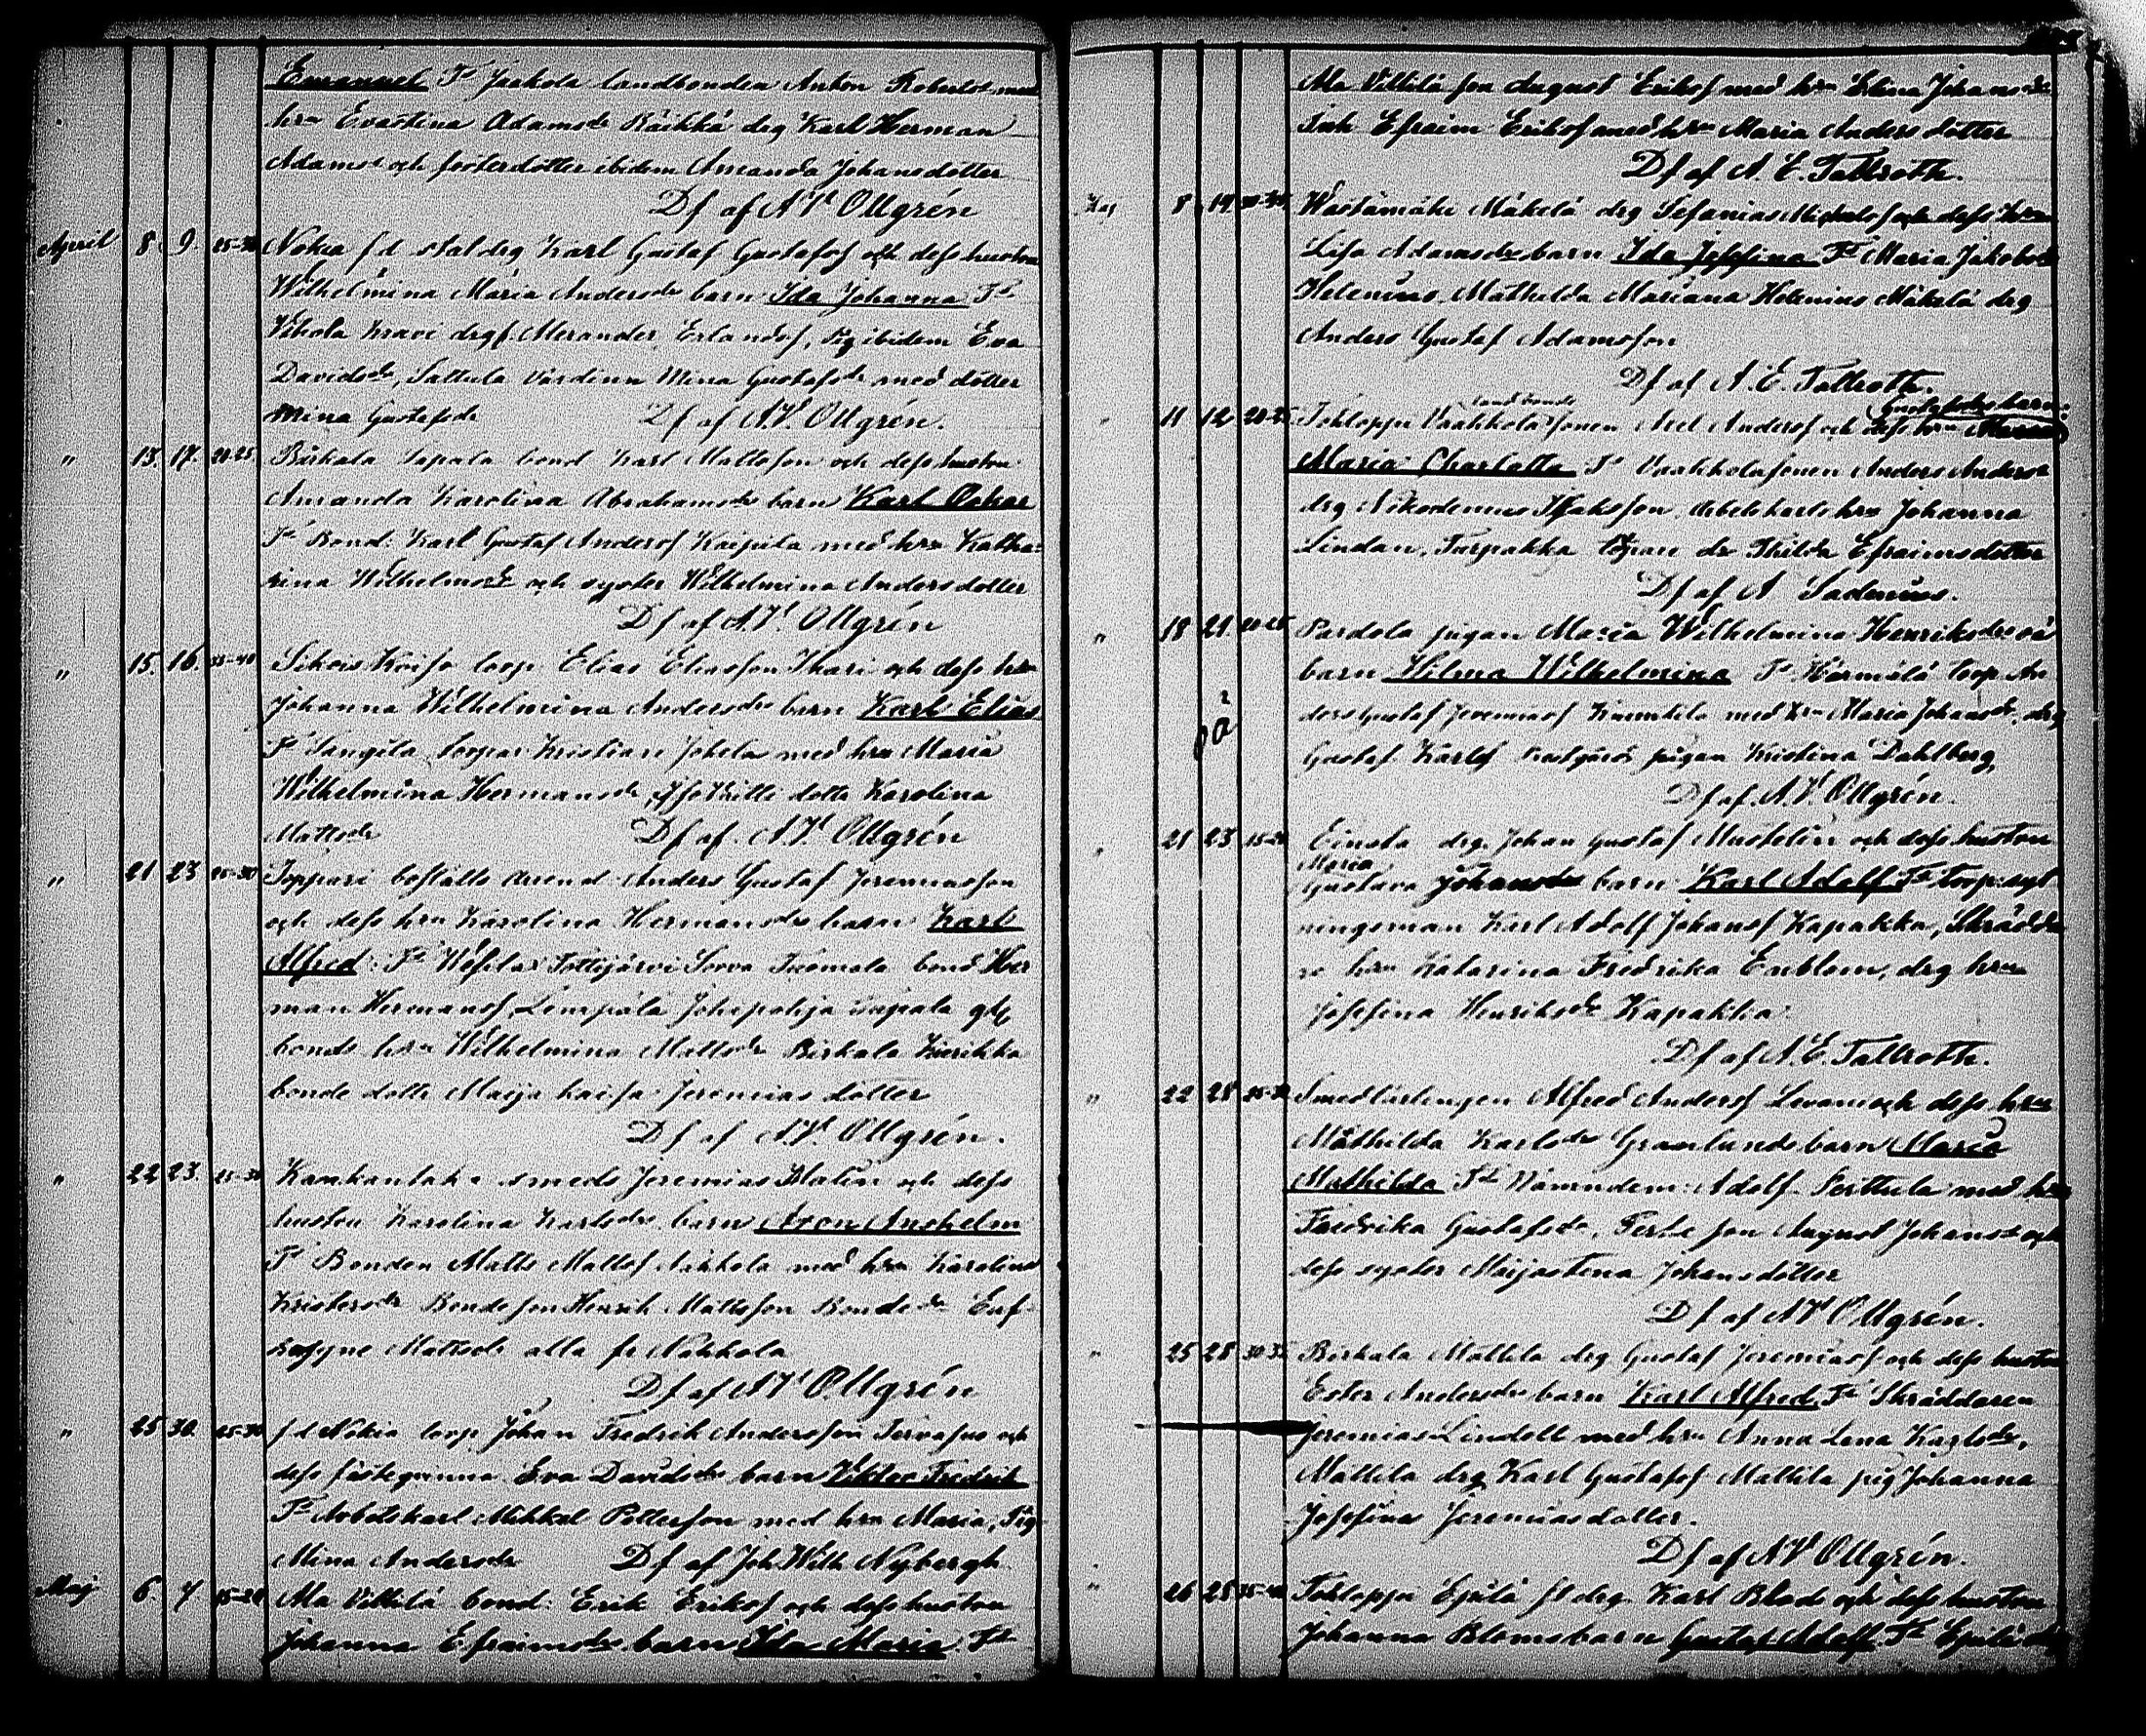 Emanuel Ts Jaakola landbonden Anton Robertss med
hrn Evastina Adamsdr Räikkä drg Karl Herman
Adamss och fosterdotter ibidem Amanda Johansdotter
Df af A.V. Ollgrén
April 8 9. 25-30 Nokia fd staldrg Karl Gustaf Gustafsf och dess hustru
Wilhelmina Maria Andersdr barn Ida Johanna Ts
Vihola Knavi drgf. Alexander Erlandsf, Pig ibidem Eva
Davidsdr, Sattula Värdinn Mina Gustafsdr med dotter
Mina Gustafsdr Df af A.V. Ollgrén.
" 13. 17. 20-25 Birkala Sapala bond Karl Mattsson och dess hustru
Amanda Karolina Abrahamsdr barn Karl Oskar
Ts Bond: Karl Gustaf Andersf Kaipila med hrn Katha-
rina Wilhelmsdr och syster Wilhelmina Andersdotter
Df af A.V. Ollgrén
" 15. 16. 35-40 Koifo torp. Elias Eliasson Ihari och dess hrn
Johanna Wilhelmina Andersdr barn Karl Elias
Ts torpar Kristian Jokela med hrn Maria
Wilhelmina Hermansdr, dotte Karolina
Mattsdr Df af. A.V. Ollgrén
" 21 23 25-30 Toppari Anders Gustaf Jeremiasson
och dess hrn Karolina Hermansdr barn Karl
Alfred. Ts Tottijärvi Sorva Tuomola bond Her
man Hermansf, Lempäla
bonds hrn Wilhelmina Mattsdr Birkala Kierikka
bonde dotte Maija Kaisa Jeremias dotter
Df af A.V. Ollgrén.
" 22 23. 25-30 Kankantaka smeds Jeremias Malin och dess
hustru Karolina Karlsdr barn Aron Anshelm
Ts Bonden Matts Mattsf Nakkola med hrn Karolina
Kristersdr Bonde son Henrik Mattsson Bonde dr Euf-
rosyne Mattsdr alla fr Nakkola
Df af A.V. Ollgrén
" 25 30. 25-30 fd Nokia torp Johan Fredrik Andersson Tervasuo och
dess Eva Davidsdr barn Viktor Fredrik
Ts Arbetskarl Mikkel Pettersson med hrn Maria, Pig
Mina Andersdr Df af Joh. Wilh Nybergh
Maj 6. 7 25-30 Ala Villilä bond: Erik Eriksf och dess hustru
Johanna Efraimsdr barn Ida Maria Ts
Ala Villilä son August Eriksf med hrn Elina Johansdr
Inh Efraim Eriksf med hrn Maria Anders dotter
Df af A. E. Tallroth.
Maj 8 14 Westämäki Mäkelä drg Sefanias och dess hrn
Lisa Adamsdr barn Ida Josefina Ts Maria Jakobsdr
Helenius Mathilda Mariana Helenius Mäkelä drg
Anders Gustaf Adamsson
Df af A. E. Tallroth.
landbonde
" 11 12 20-25 Tohloppi Vaakkola sonen Axel Andersf och dess hrn
Gustafsdr barn:
Maria Charlotta Ts Vaakkola sonen Anders Anderss
drg Nikodemus Isaksson Arbetskarls hrn Johanna
Lindan, Turpakka dr Thilda Efraimsdotter
Df af A Sadenius.
" 18 21. 20-25 Pardola pigan Maria Wilhelmina Henriksdrs oä
barn Hilma Wilhelmina Ts Härmälä torp An
ders Gustaf Jeremiasf med hrn Maria Johansdr, drg
Gustaf Karlsf pigan Kristina Dahlberg
Df af. A.V. Ollgrén.
oä
" 21 23 15-20 Einola drg. Johan Gustaf Mustelin och dess hustru
Maria
Gustava Johansdr barn Karl Adolf Ts torp: syt
ningsman Karl Adolf Johansf Kapakka, Skrädda
re hrn Katarina Fredrika Enblom, drg hrn
Josefina Henriksdr Kapakka
Df af A. E. Tallroth.
" 22 28 25-30 Smedlärlingen Alfred Andersf Levan och dess hrn
Mathilda Karlsdr Granlunds barn Maria
Mathilda Ts Nämndem: Adolf Perttula med hrn
Fredrika Gustafsdr, son August Johanss och
dess syster Maijastina Johansdotter
Df af A.V. Ollgrén.
" 25 28 30-35 Birkala Mattila drg Gustaf Jeremiasf och dess hustru
Ester Andersdr barn Karl Alfred Ts Skräddaren
Jeremias Lindell med hrn Anna Lena Karlsdr,
Mattila drg Karl Gustafsf Mattila pig Johanna
Josefina Jeremiasdotter.
Df af A.V. Ollgrén.
" 26 28 35-40 Tohloppi Epilä fd drg. Karl Blad och dess hustru
Johanna Bloms barn Gustaf Adolf Ts Epilä